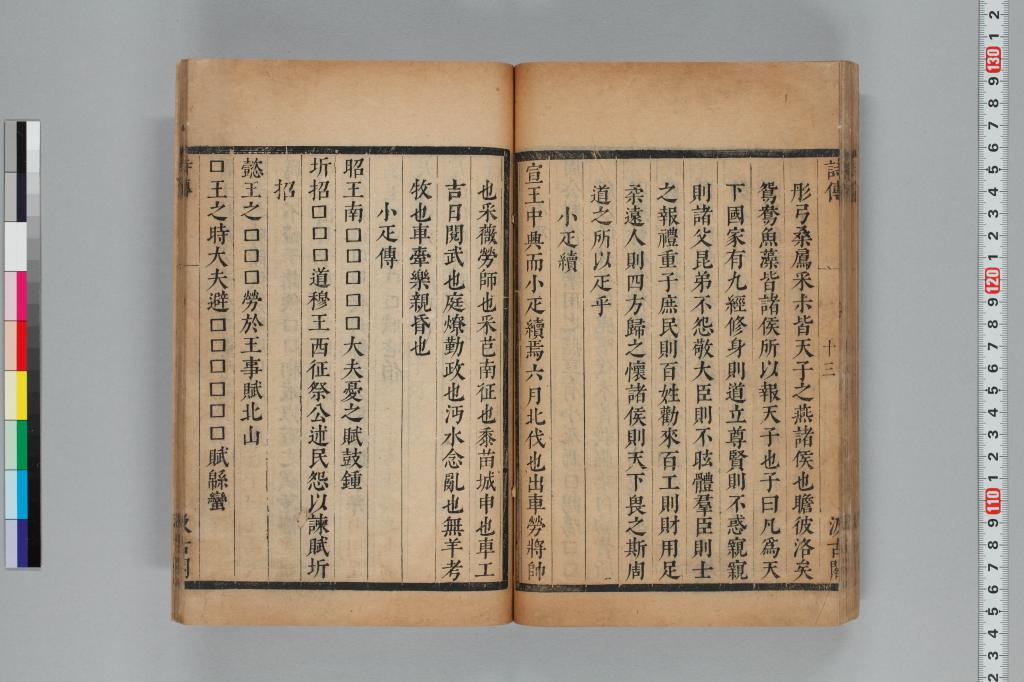 詩傳
十三
汲古閣
彤弓桑扈采尗皆天子之燕諸侯也瞻彼洛矣
鴛鴦魚藻皆諸侯所以報天子也子曰凡爲天
下國家有九經修身則道立尊賢則不惑親親
則諸父昆弟不怨敬大臣則不眩體羣臣則士
之報禮重子庶民則百姓勸來百工則財用足
柔遠人則四方歸之懷諸侯則天下畏之斯周
道之所以疋乎
小疋續
宣王中興而小疋續焉六月北伐也出車勞將帥
也采薇勞師也采芑南征也黍苗城申也車工
吉日閱武也庭燎勤政也沔水念亂也無羊考
牧也車舝樂親昏也
小疋傳
昭王南口口口口口大夫憂之賦鼓鍾
圻招口口口道穆王西征祭公述民怨以諫賦圻
招
懿王之口口口勞於王事賦北山
口王之時大夫避口口口口口口口賦緜蠻